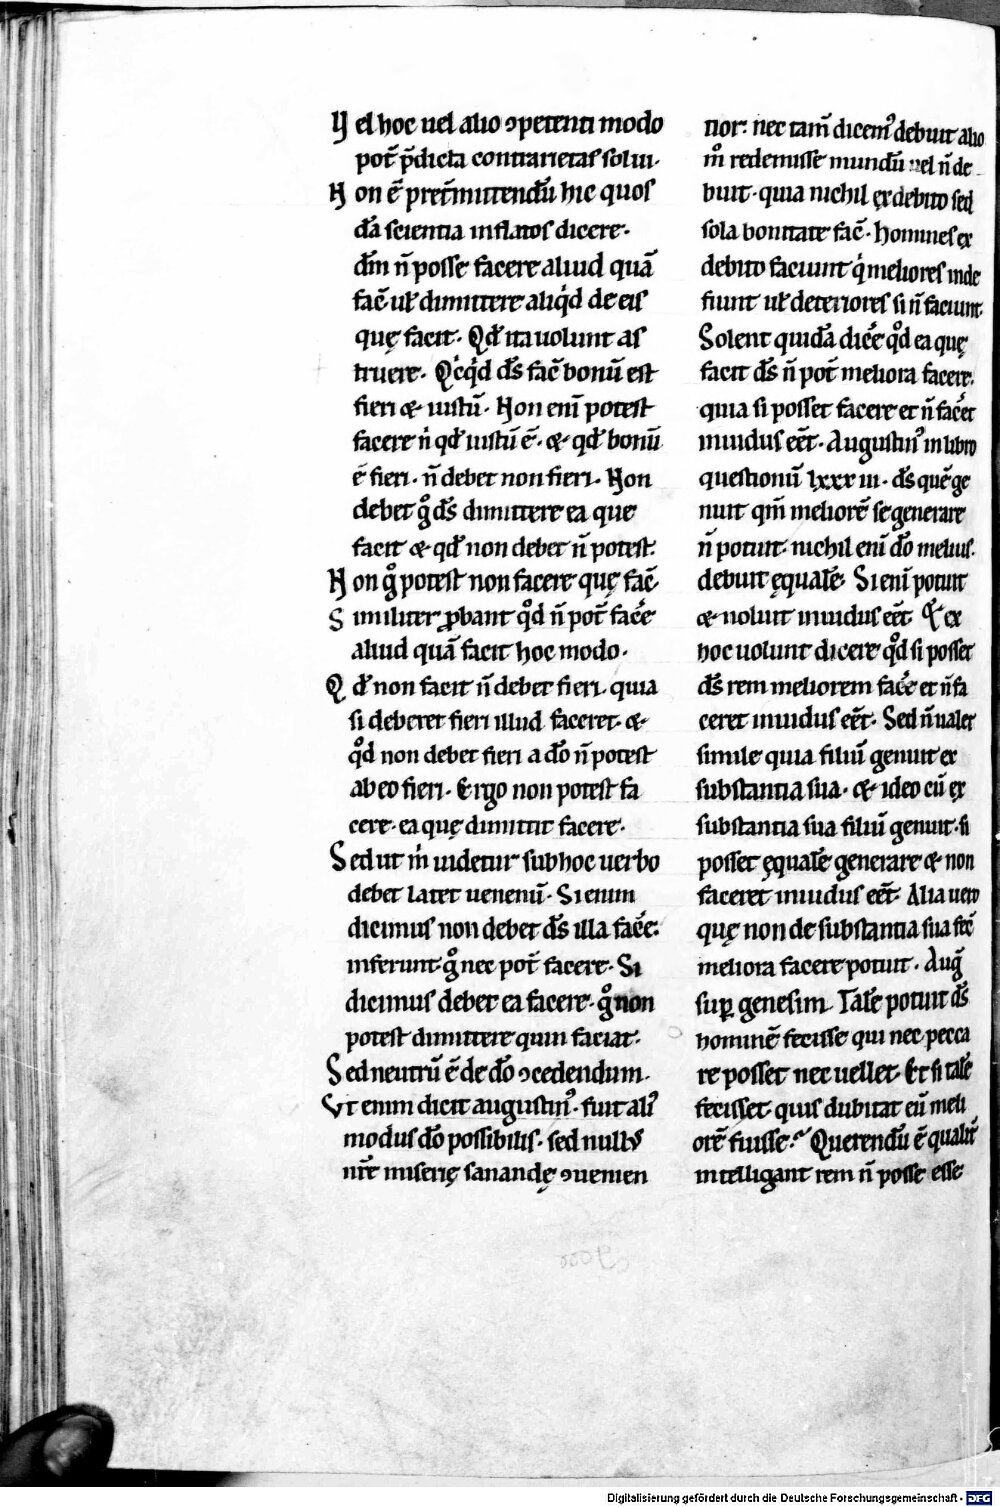 Vel hoc uel alio ↄpetenti modo
pot̄ p̄dicta contrarietas solui.
Non ē pret̄mittendū hic quos
dā scientia inflatos dicere.
dm̄ n̄ posse facere aliud quā
fac̄ uł dimittere aliqͥd de eis
quę facit. Qd̄ ita uolunt as
truere. Qͥcqͥd ds̄ fac̄ bonū est
fieri & iustū. Non enī potest
facere nͥ qd̄ iustū ē. & qd̄ bonū
ē fieri. n̄ debet non fieri. Non
debet gͦ ds̄ dimittere ea que
facit & qd̄ non debet n̄ potest.
Non gͦ potest non facere quę fac̄.
Similiter ꝓbant qͦd n̄ pot̄ fac̄e
aliud quā facit hoc modo.
Qd̄ non facit n̄ debet fieri. quia
si deberet fieri illud faceret. &
qͦd non debet fieri a dō n̄ potest
ab eo fieri. Ergo non potest fa
cere. ea quę dimittit facere.
Sed ut m̄ uidetur sub hoc uerbo
debet latet uenenū. Si enim
dicimus non debet ds̄ illa fac̄e.
inferunt. gͦ nec pot̄ facere. Si
dicimus debet ea facere. gͦ non
potest dimittere quin faciat.
Sed neutrū ē de dō ↄcedendum.
Vt enim dicit augustinꝰ. fuit aliꝰ
modus dō possibilis. sed nullus
nr̄e miserię sanandę ↄuenien
tior. nec tam̄ dicemꝰ debuit alio
mͦ redemisse mundū uel n̄ de
buit. quia nichil ex debito sed
sola bonitate fac̄. Homines ex
debito faciunt qͥ meliores inde
fiunt uł deteriores si n̄ faciunt.
Solent quidā dic̄e qͦd ea quę
facit ds̄ n̄ pot̄ meliora facere.
quia si posset facere et n̄ fac̄et
inuidus eēt. Augustinꝰ in libro
questionū lxxx iii. ds̄ quē ge
nuit qm̄ meliorē se generare
n̄ potuit. nichil enī dō melius.
debuit ęqualē. Si enī potuit
& noluit inuidus eēt. Ex
hoc uolunt dicere qͦd si posset
ds̄ rem meliorem fac̄e et n̄ fa
ceret inuidus eēt. Sed n̄ ualet
simile quia filiū genuit ex
substantia sua. & ideo cū ex
substantia sua filiū genuit. si
posset ęqualē generare & non
faceret inuidus eēt. Alia uero
quę non de substantia sua fec̄
meliora facere potuit. Auḡ
suꝑ genesim. Talē potuit ds̄
hominē fecisse qui nec pecca
re posset nec uellet. Et si talē
fecisset quis dubitat eū meli
orē fuisse? Querendū ē qualit̄
intelligant rem n̄ posse esse
Digitalisierung gefördert durch die Deutsche Forschungsgemeinschaft - DFG